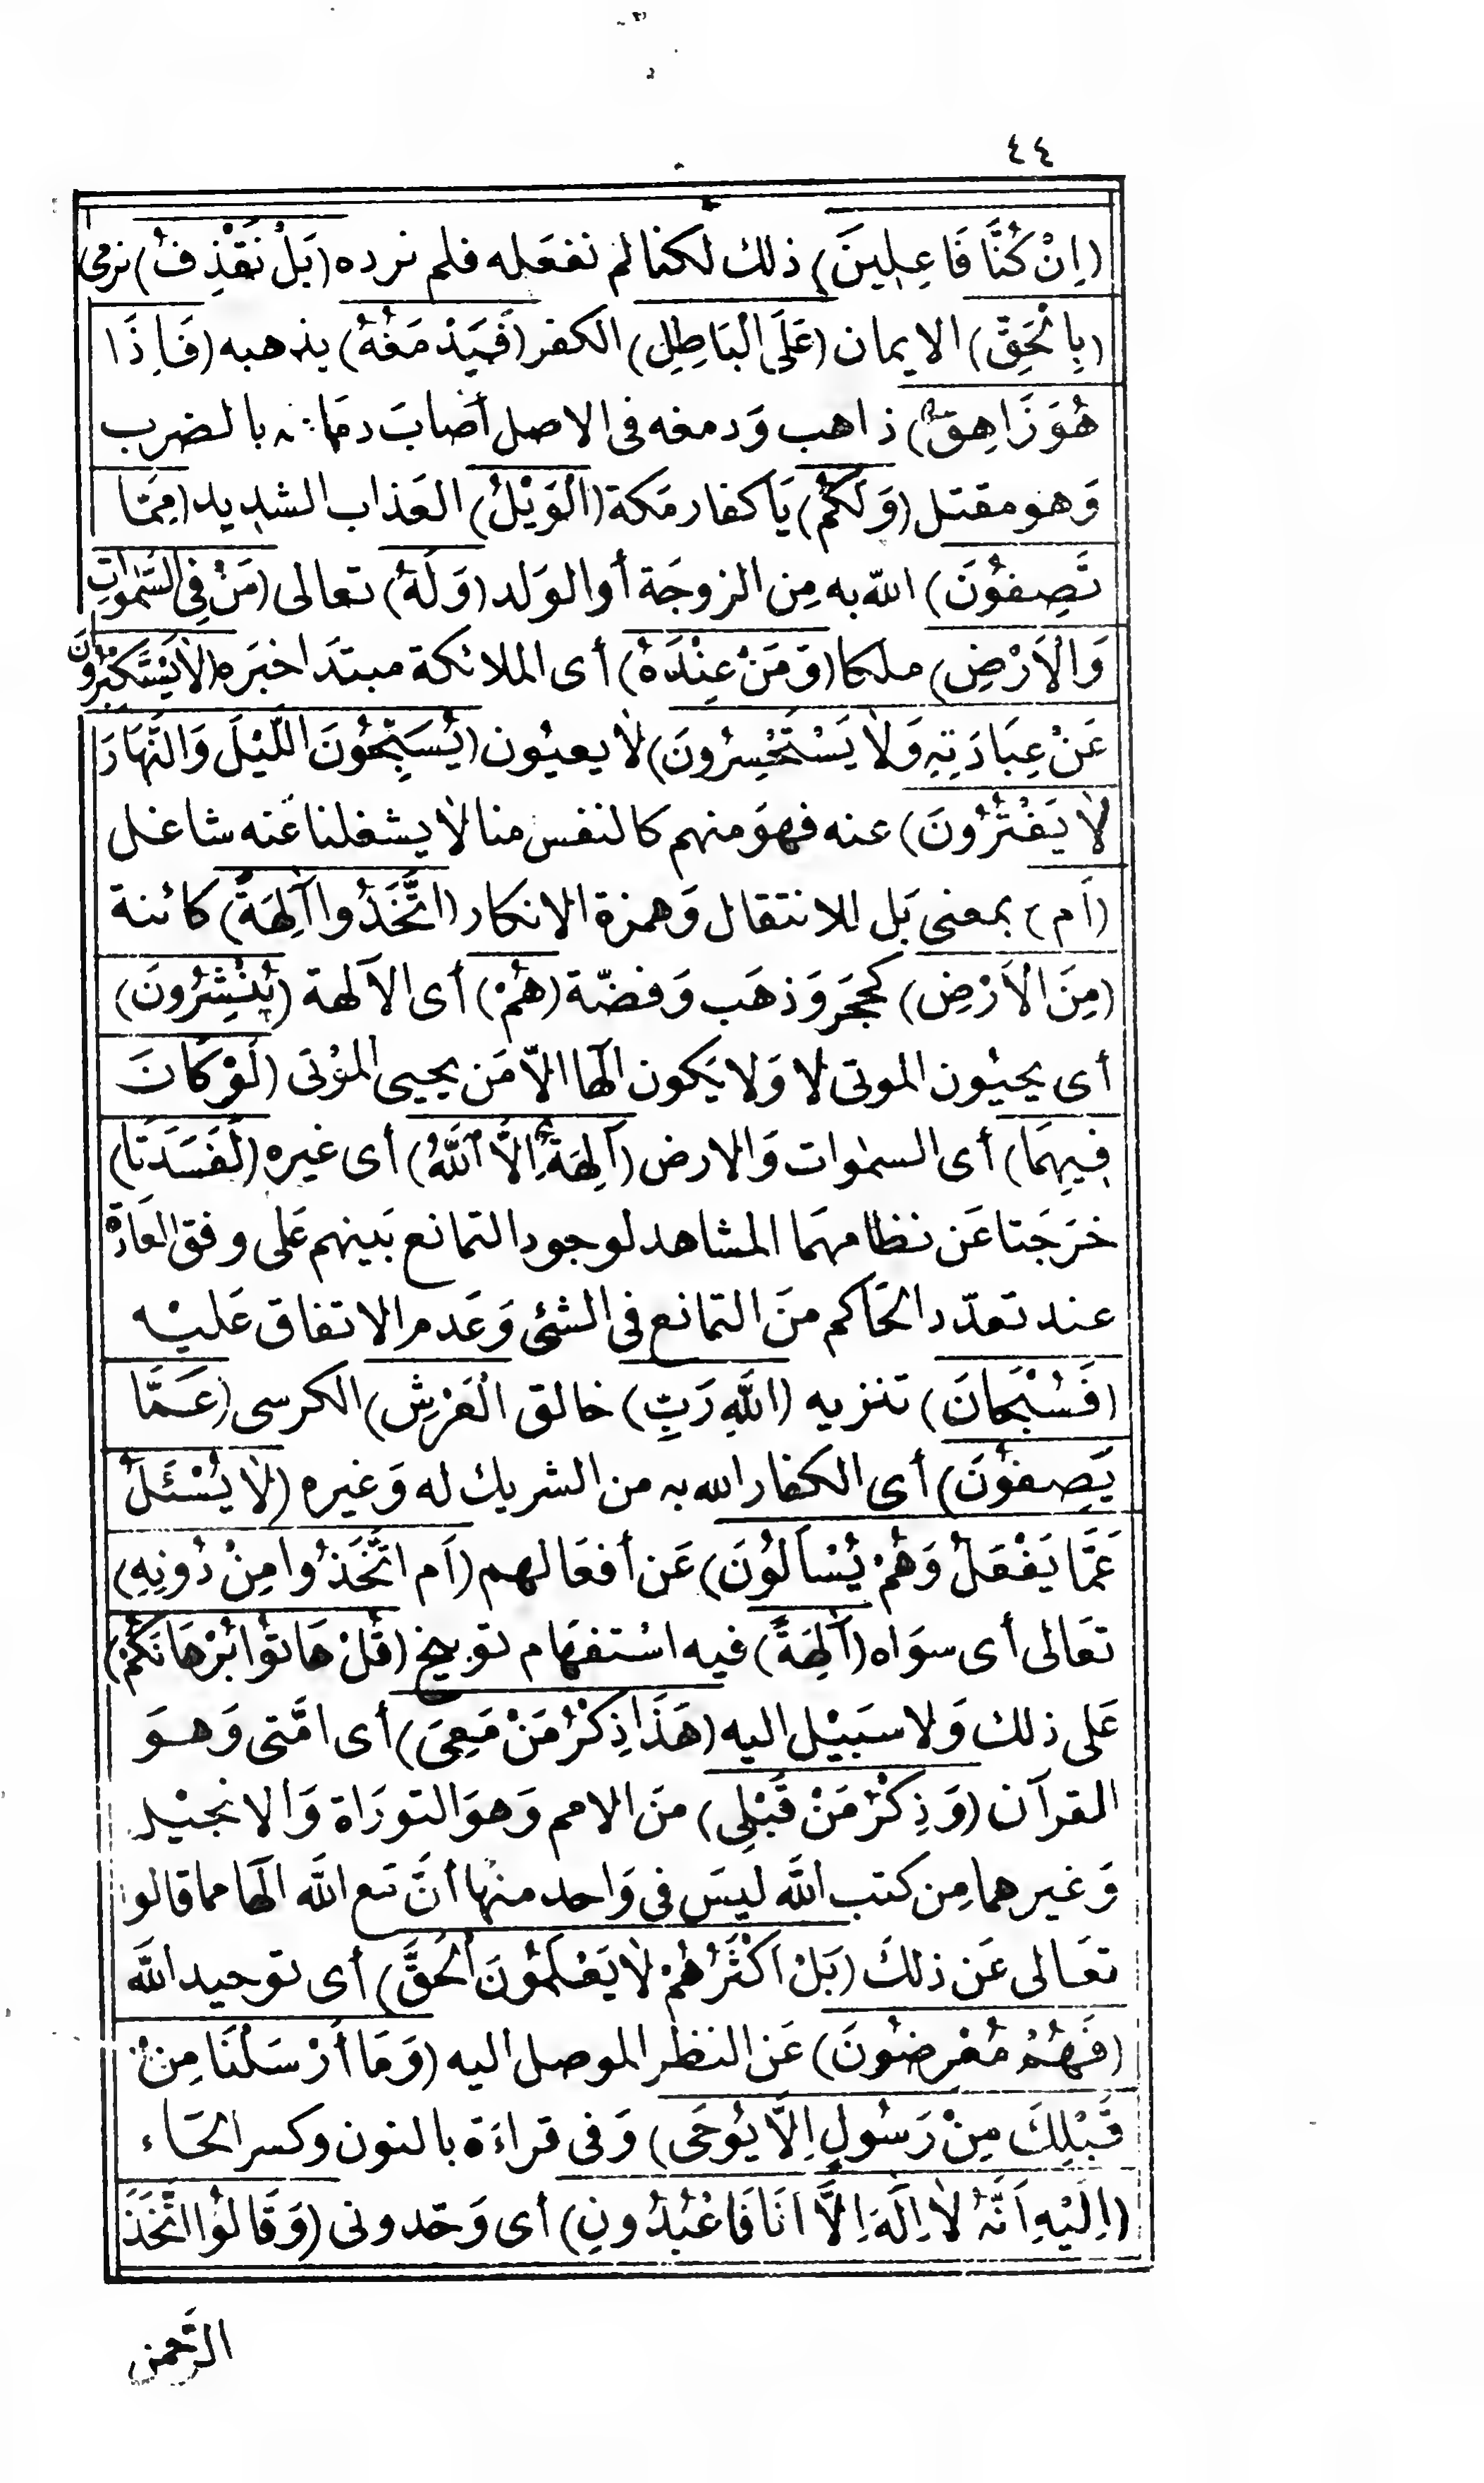 ٤٤
(اِنْ كُنَّا فَاعِلِينَ) ذلك لكنا لم نفعَله فلم نرده (بَلْ نَقْذِفُ) نرمى
(بِالْحَقِّ) الايمان (عَلَى الْبَاطِلِ) الكفر (فَيَدْمَغُهُ) يذهبه (فَاِذَا
هُوَ زَاهِقٌ) ذاهب وَدمغه فى الاصل أصَابَ دمَاغه بالضرب
وَهو مقتل (وَلَكُمُ) يَا كفار مَكة (الْوَيْلُ) العَذاب الشديد (مِمَّا
تَصِفُونَ) الله به مِن الزوجَة أو الوَلد (وَلَهُ) تعالى (مَنْ فِى السَّمٰوَاتِ
وَالْاَرْضِ) ملكا (وَمَنْ عِنْدَهُ) أى الملائكة مبتدَا خبَره (لَا يَسْتَكْبِرُونَ
عَنْ عِبَادَتِهِ وَلَا يَسْتَحْسِرُونَ) لا يعيُون (يُسَبِّحُونَ اللَّيْلَ وَالنَّهَارَ
لَا يَفْتُرُونَ) عنه فهوَ منهم كالنفس منا لا يشغلنا عَنه شاغل
(اَم) بمعنى بَل للانتقال وَهمزة الانكار (اتَّخَذُوا آلِهَةً) كائنة
(مِنَ الْاَرْضِ) كحجَر وَذهَب وَفضّة (هُمْ) أى الآلهة (يُنْشِرُونَ)
أى يحيُون الموتى لا وَلا يَكون الٓها الّا مَن يحيى المؤتى (لَوْ كَانَ
فِيهِمَا) أى السمٰوات وَالارض (آلِهَةٌ اِلَّا اللّٰهُ) أى غيره (لَفَسَدَتَا)
خرَجَتا عَن نظامهمَا المشاهد لوجود التمانع بَينهم عَلى وفق العَادَة
عند تعدّد الحَاكم منَ التمانع فى الشئى وَعَدم الاتفاق عَليْه
(فَسُبْحَانَ) تنزيه (اللّٰهِ رَبِّ) خالق الْعَرْشِ) الكرسى (عَمَّا
يَصِفُونَ) أى الكفار الله به من الشريك له وَغيره (لَا يُسْئَلُ
عَمَّا يَفْعَلُ وَهُمْ يُسْاَلُونَ) عَن أفعَالهم (اَم اتَّخَذُوا مِنْ دُونِهِ)
تعَالى أى سوَاه (آلِهَةً) فيه اسْتفهَام توبيخ (قُلْ هَاتُوا بُرْهَانَكُمْ)
عَلى ذلك وَلا سَبيْل اليه (هَذَا ذِكْرُ مَنْ مَعِىَ) أى امَّتى وَهوَ
القرآن (وَذِكْرُ مَنْ قَبْلِى) منَ الامم وَهوَ التورَاة وَالانجيْل
وَغيرهما مِن كتب الله ليسَ فى وَاحد منهَا أنَّ مَع الله الٓها مما قالوا
تعَالى عَن ذلكَ (بَلْ اَكْثَرُهُمْ لَا يَعْلَمُونَ الْحَقَّ) أى توحيد الله
(فَهُمْ مُعْرِضُونَ) عَن النظر الموصل اليه (وَمَا أَرْسَلْنَا مِنْ
قَبْلِكَ مِنْ رَسُولٍ اِلَّا يُوحَى) وَفى قراءَة بالنون وكسر الحَاء
(اِلَيْهِ اَنَّهُ لَا اِلَهَ اِلَّا اَنَا فَاعْبُدُونِ) أى وَحّدونى (وَقَالُوا اتَّخَذَ
الرَّحمن